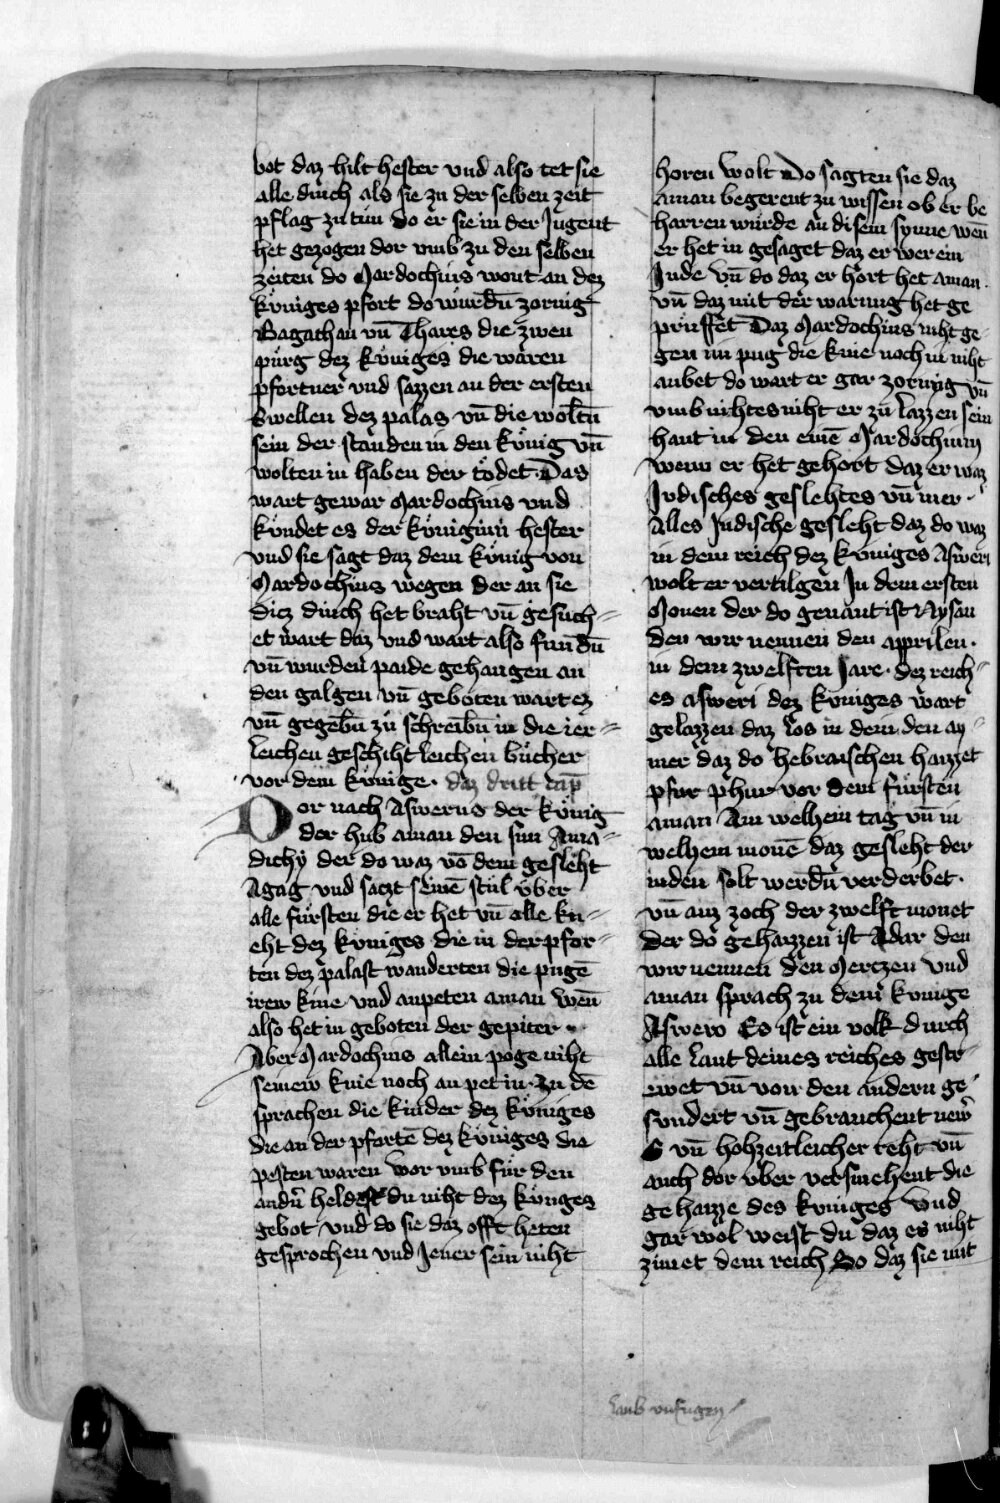 bot daz hilt hester vnd also tet sie
alle dinch als sie zu der selben zeit
pflag zu tun do er sie in der Jugent
het gezogen dor vmb zu den selben
zeiten do Mardochius wont an dez
kvniges pfort do wurdn̄ zornig
Bagathan vn̄ Thares die zwen
purg dez kvniges die waren
pfortner vnd sazzen an der ersten
Swellen dez palas vn̄ die woltn̄
sein der standen in den kvnig vn̄
wolten in haben der tödet Das
wart gewar Mardochius vnd
kvndet es der kvniginn hester
vnd sie sagt daz dem kvnig von
Mardochius wegen der an sie
dicz dinch het braht vn̄ gesuch=
et wart daz vnd wart also fundn̄
vn̄ wurden paide gehangen an
den galgen vn̄ geboten wart ez
vn̄ gegebn̄ zu schreibn̄ in die ier=
leichen geschiht leichen bücher
vor dem kvnige. daz dritt cap̄
Dor nach Aswerus der kvnig
der hub aman den sun Ama=
dichÿ der do waz vō dem gesleht
Agag vnd saczt seinē stul vber
alle fürsten die er het vn̄ alle kn=
eht dez kvniges die in der pfor=
ten dez palast wanderten die pugē
irew knie vnd anpeten aman wēn
also het in geboten der gepiter
Aber Mardochius allein poge niht
seinew knie noch an pet in. zu dē
sprachen die kinder dez kvniges
die an der pfortē dez kvniges die
pesten waren wor vmb für den
andn̄ heldest du niht dez kvniges
gebot vnd do sie daz offt heten
gesprochen vnd Jener sein niht
horen wolt Do sagten sie daz
aman begerent zu wissen ob er be
harren würde an disem synne wēn
er het in gesaget daz er wer ein
Jude vn̄ do daz er hort het aman.
vn̄ daz mit der warung het ge
prüffet Daz Mardochius niht ge=
gen im pug die knie noch in niht
anbet do wart er gar zornig vn̄
vmb nihtes niht er zu lazzen sein
hant in den einē Mardochium
wenn er het gehort daz er waz
Judisches geslehtes vn̄ mer.
Alles Judische gesleht daz do waz
in dem reich dez kvniges Asweri
wolt er vertilgen In dem ersten
Monen der do genant ist Nysan
den wir nennen den apprilen.
in dem zwelften Jare. dez reich=
es asweri dez kvniges wart
gelazzen daz los in dem den ay=
mer daz do hebraischen haizzet
pfur phur vor dem fürsten
aman Am welhem tag vn̄ in
welhem monē daz gesleht der
inden solt werdn̄ verderbet.
vn̄ auz zoch der zwelft monet
der do gehaizzen ist Adar den
wir nennen den Merczen vnd
aman sprach zu dem kvnige
Aswero Es ist ein volk durch
alle lant deines reiches gestr=
ewet vn̄ von den andern ge=
svndert vn̄ gebrauchent new̄
S vn̄ hohzeitleicher reht vn̄
auch dor vber versmehent die
gehaizze des kvniges Vnd
gar wol weist du daz es niht
zimet dem reich So daz sie mit